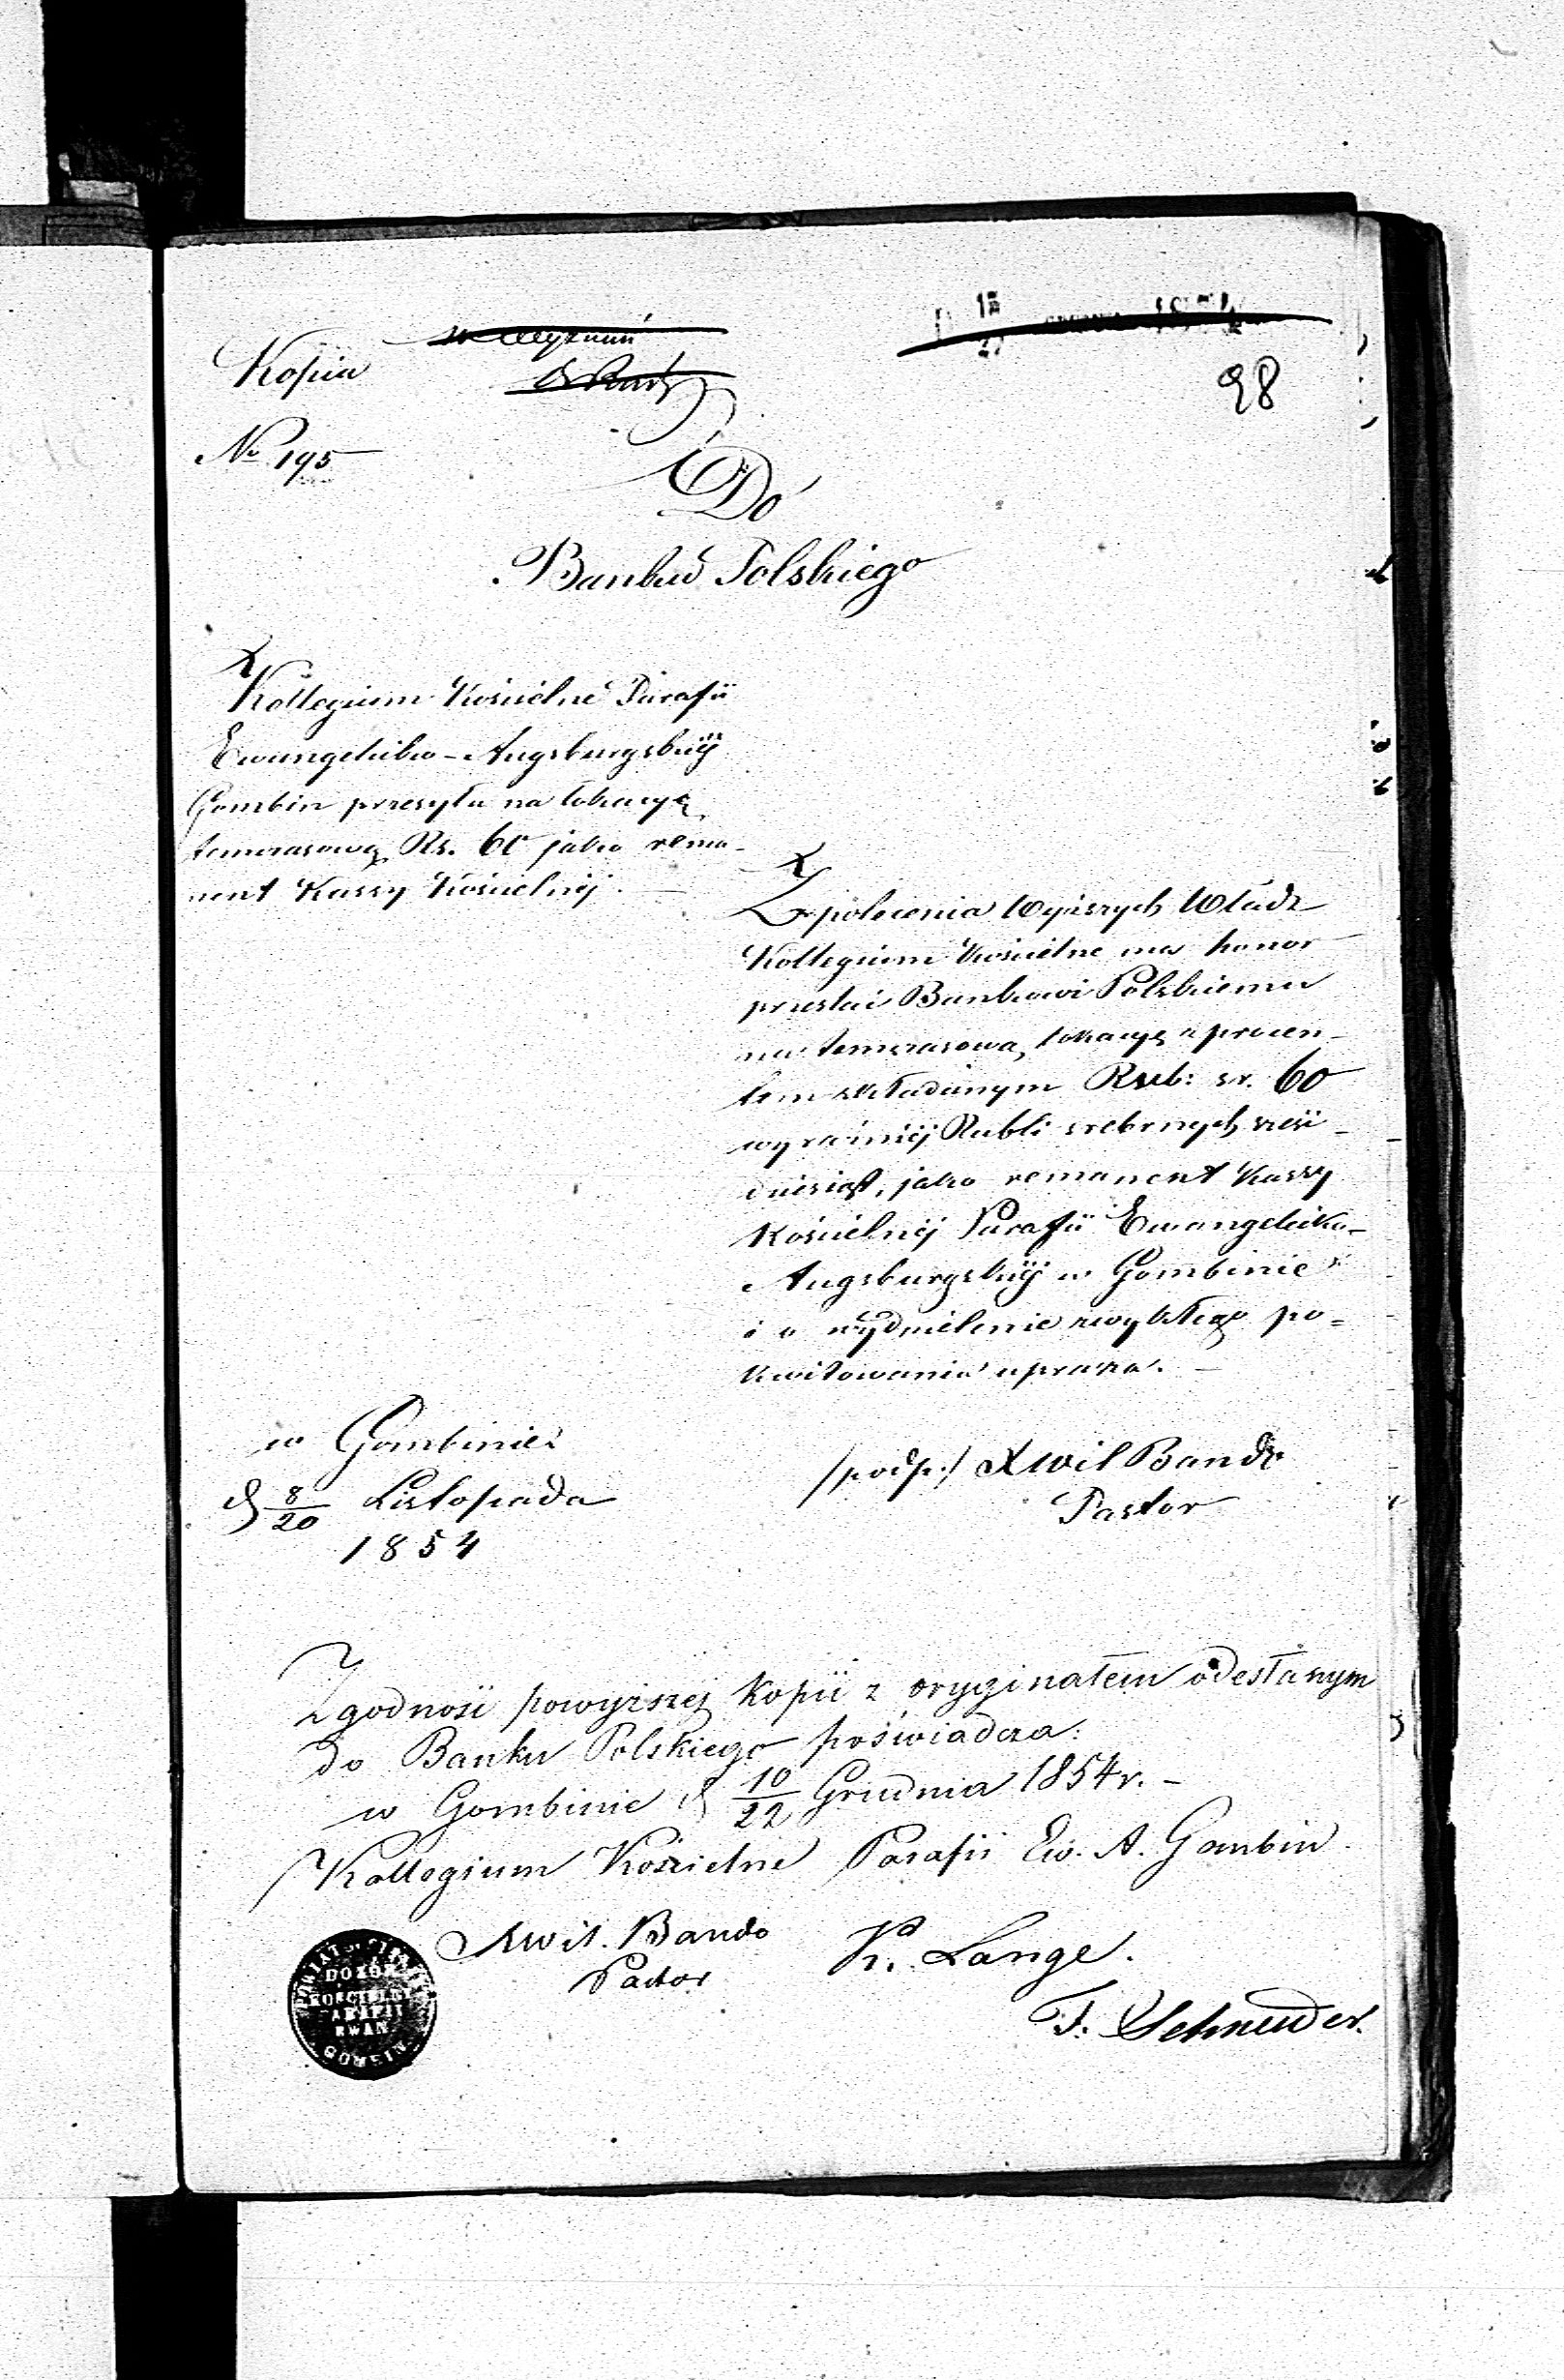 Kopia
98
No 195
Do
Banku Polskiego
Kollegium Kościelne Parafii
Ewangelicko-Augsburgskiéj
Gombin przesyła na lokacyę
temczasową Rs. 60 jako rema-
nent Kassy Kościelnéj. —
Z polecenia Wyższych Władz
Kollegium Kościelne ma honor
przesłać Bankowi Polskiemu
na temczasową lokacyę z procen-
tem składanym Rub: sr. 60
wyraźniéj Rubli srebrnych sześć-
dziesiąt, jako remanent Kassy
Kościelnéj Parafii Ewangelicko-
Augsburgskiéj w Gombinie
i o wydzielenie zwykłego po=
kwitowania uprasza. —
w Gombinie
d 8/20 Listopada
1854
/podp:/ X Wil Bando
Pastor
Zgodność powyższej Kopii z oryginałem odesłanym
do Banku Polskiego poświadcza:
w Gombinie d 10/22 Grudnia 1854 r. -
Kollegium Kościelne Parafii Ew. A. Gombin
X Wil. Bando
Pastor
K. Lange.
DOZÓR
KOŚCIELNY
PARAFII
EWAN